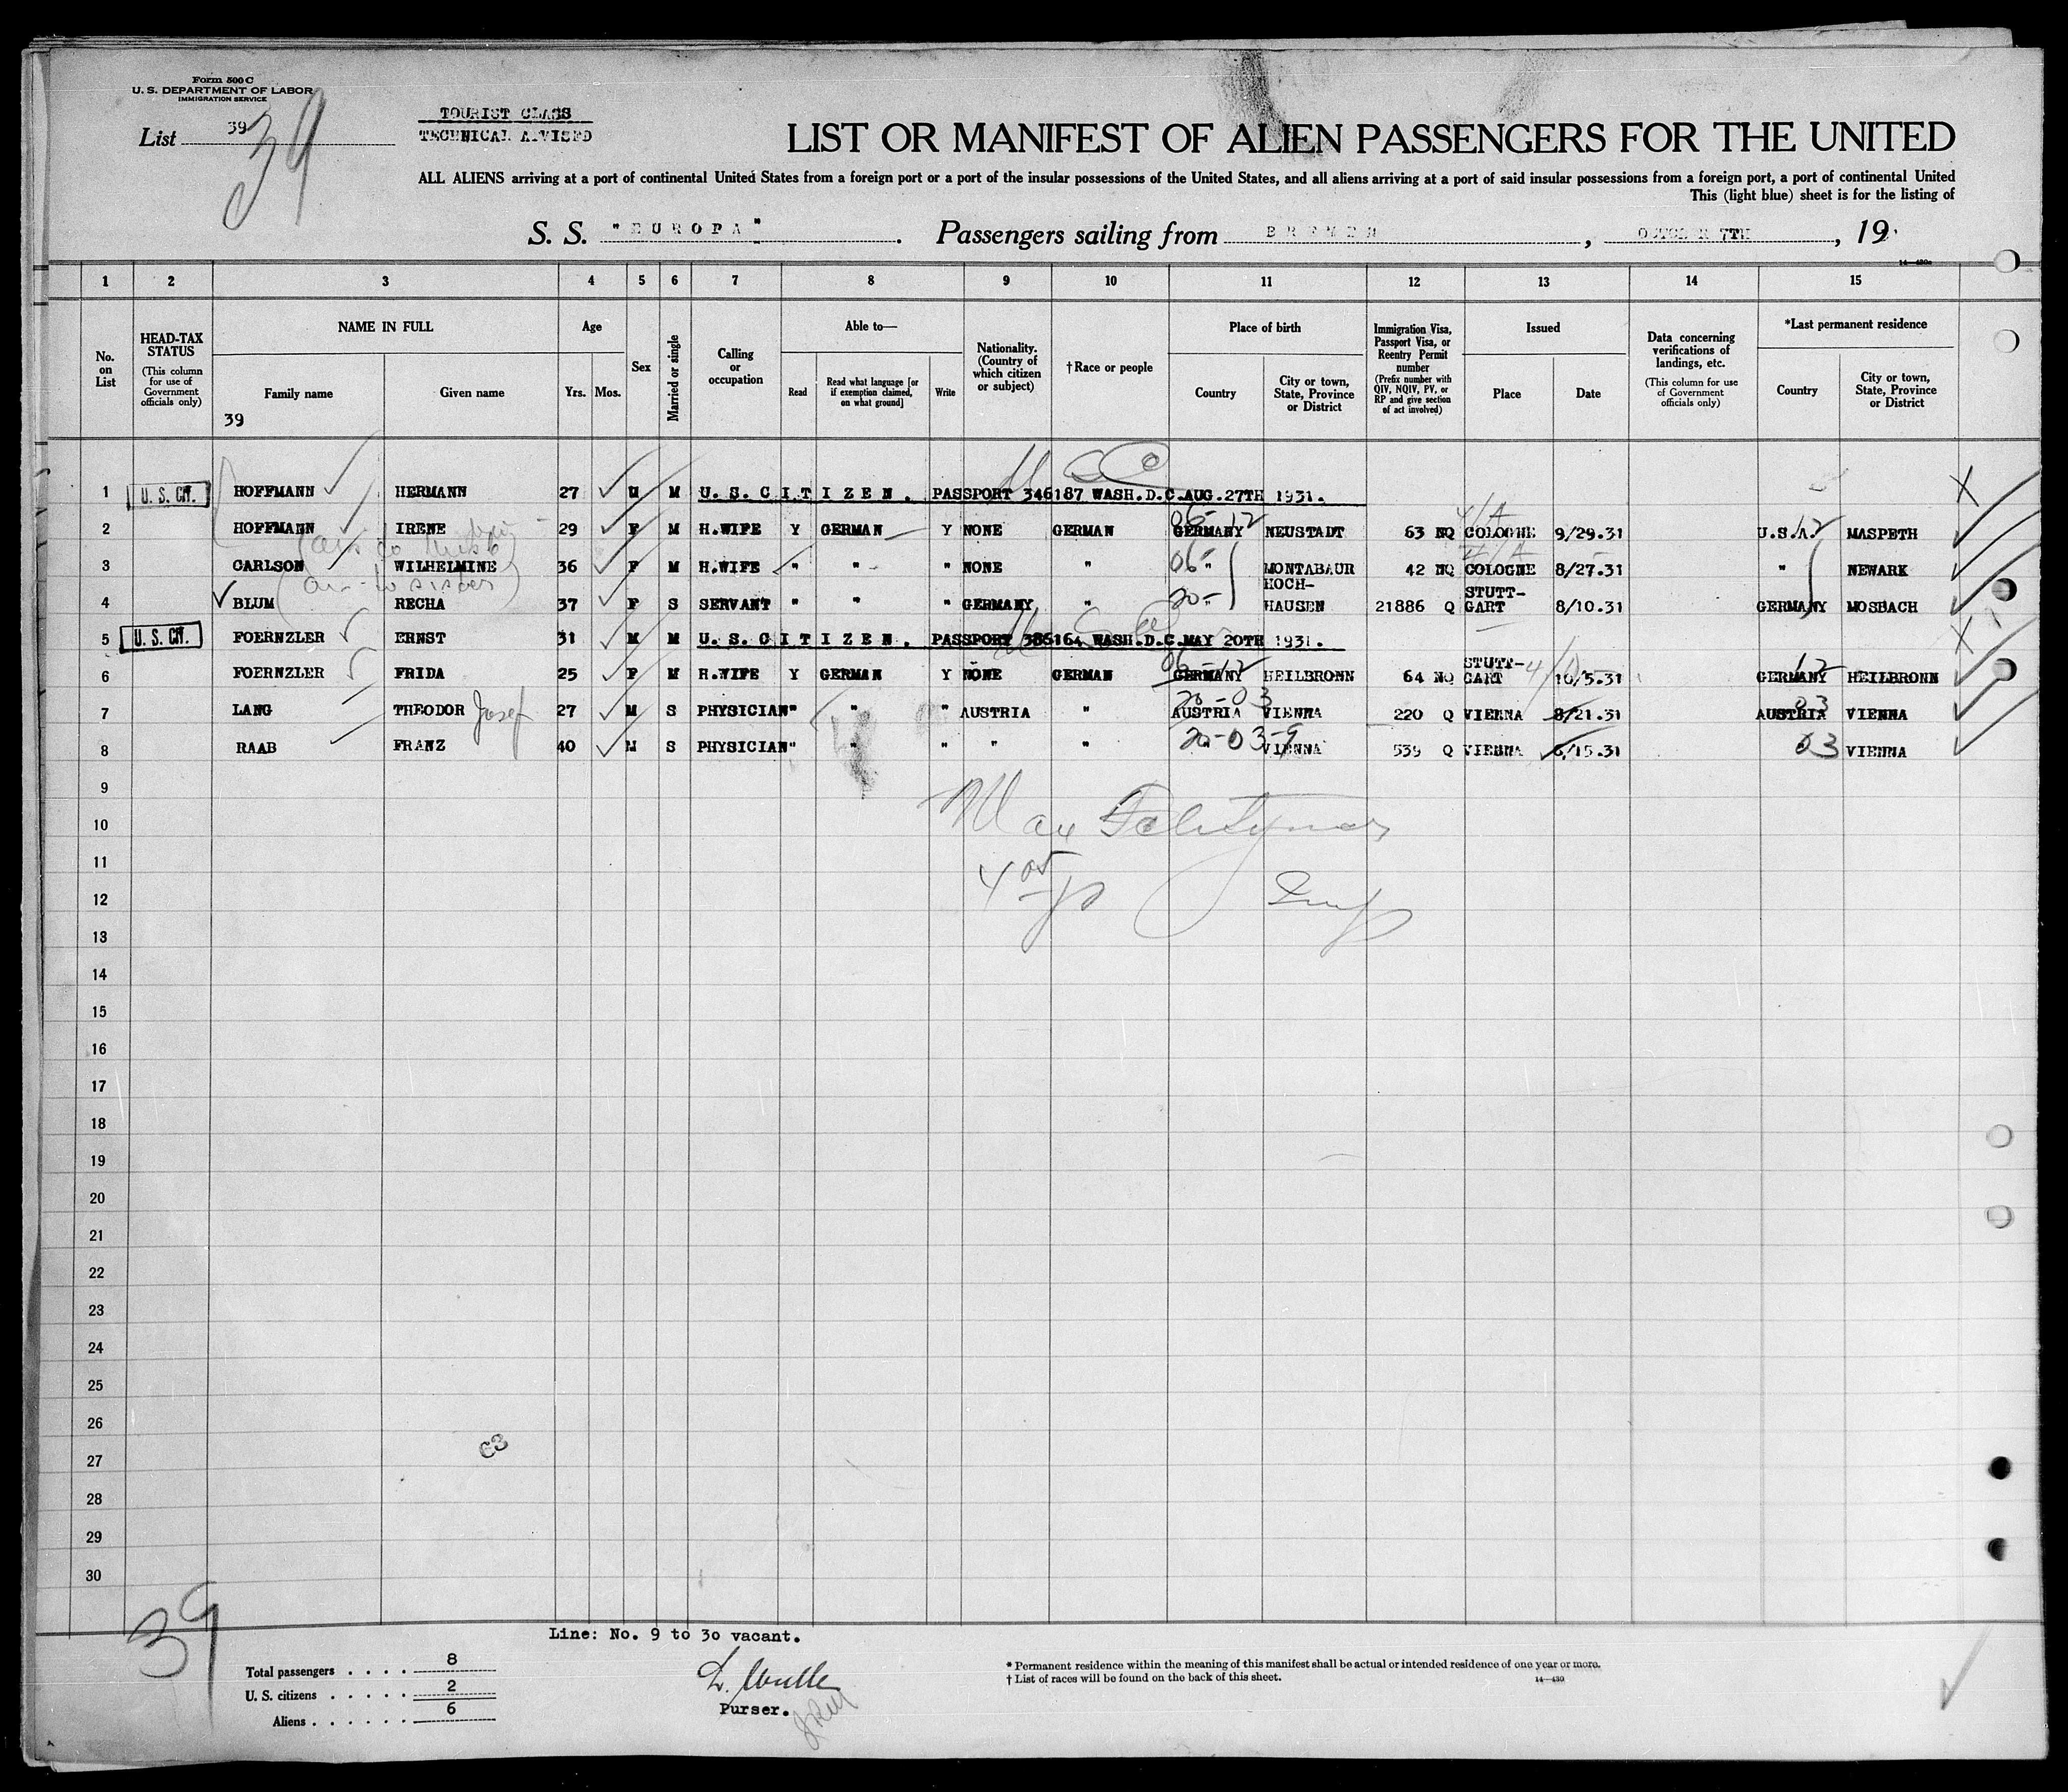 Form 500 C
U. S. DEPARTMENT OF LABOR
IMMIGRATION SERVICE
List 39
39
TOURIST CLASS
TECHNICAL
LIST OR MANIFEST OF ALIEN PASSENGERS FOR THE UNITED
ALL ALIENS arriving at a port of continental United States from a foreign port or a port of the insular possessions of the United States, and all aliens arriving at a port of said insular possessions from a foreign port, a port of continental United
This (light blue) sheet is for the listing of
S. S. "EUROPA". Passengers sailing from BREMEN, 7TH, 19
1 2 3 4 5 6 7 8 9 10 11 12 13 14 15
No. on List
HEAD-TAX STATUS
(This column for use of Government officials only)
NAME IN FULL
Family name
Given name
39
Age
Yrs. Mos.
Sex
Married or single
Calling or occupation
Able to—
Read
Read what language [or if exemption claimed, on what ground]
Write
Nationality. (Country of which citizen or subject)
† Race or people
Place of birth
Country
City or town, State, Province or District
Immigration Visa, Passport Visa, or Reentry Permit number
(Prefix number with QIV, NQIV, PV, or RP and give section of act involved)
Issued
Place
Date
Data concerning verifications of landings, etc.
(This column for use of Government officials only)
*Last permanent residence
Country
City or town, State, Province or District
1 U. S. CIT. HOFFMANN HERMANN 27 M M U. S. CITIZEN. PASSPORT 346187 WASH.D.C.AUG.27TH 1931.
2 HOFFMANN IRENE 29 F M H.WIFE Y GERMAN Y NONE GERMAN GERMANY NEUSTADT 63 NQ COLOGNE 9/29.31 U.S.A. MASPETH
3 CARLSON WILHELMINE 36 F M H.WIFE " " " NONE " " MONTABAUR 42 NQ COLOGNE 8/27.31 " NEWARK
4 BLUM RECHA 37 F S SERVANT " " " GERMANY " " HOCH-HAUSEN 21886 Q STUTT-GART 8/10.31 GERMANY MOSBACH
5 U. S. CIT. FOERNZLER ERNST 31 M M U. S. CITIZEN. PASSPORT 386164 WASH.D.C.MAY 20TH 1931.
6 FOERNZLER FRIDA 25 F M H.WIFE Y GERMAN Y NONE GERMAN GERMANY HEILBRONN 64 NQ STUTT-GART 10/5.31 GERMANY HEILBRONN
7 LANG THEODOR Josef 27 M S PHYSICIAN " " " AUSTRIA " AUSTRIA VIENNA 220 Q VIENNA 8/21.31 AUSTRIA VIENNA
8 RAAB FRANZ 40 M S PHYSICIAN " " " " " " VIENNA 539 Q VIENNA 6/15.31 VIENNA
9
10
11
12
13
14
15
16
17
18
19
20
21
22
23
24
25
26
27
28
29
30
39
Line: No. 9 to 30 vacant.
Total passengers . . . . 8
U. S. citizens . . . . . 2
Aliens . . . . . . 6
Purser.
* Permanent residence within the meaning of this manifest shall be actual or intended residence of one year or more.
† List of races will be found on the back of this sheet.
14—430